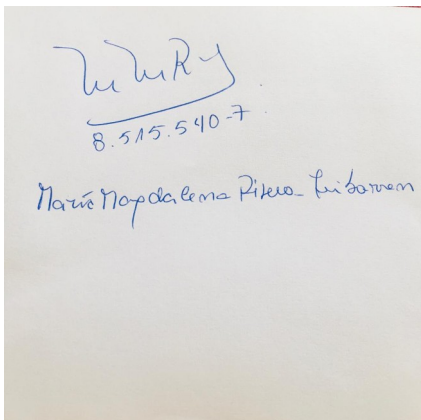 MMRY
8.515.540-7
María Magdalena Rivera Yribarren